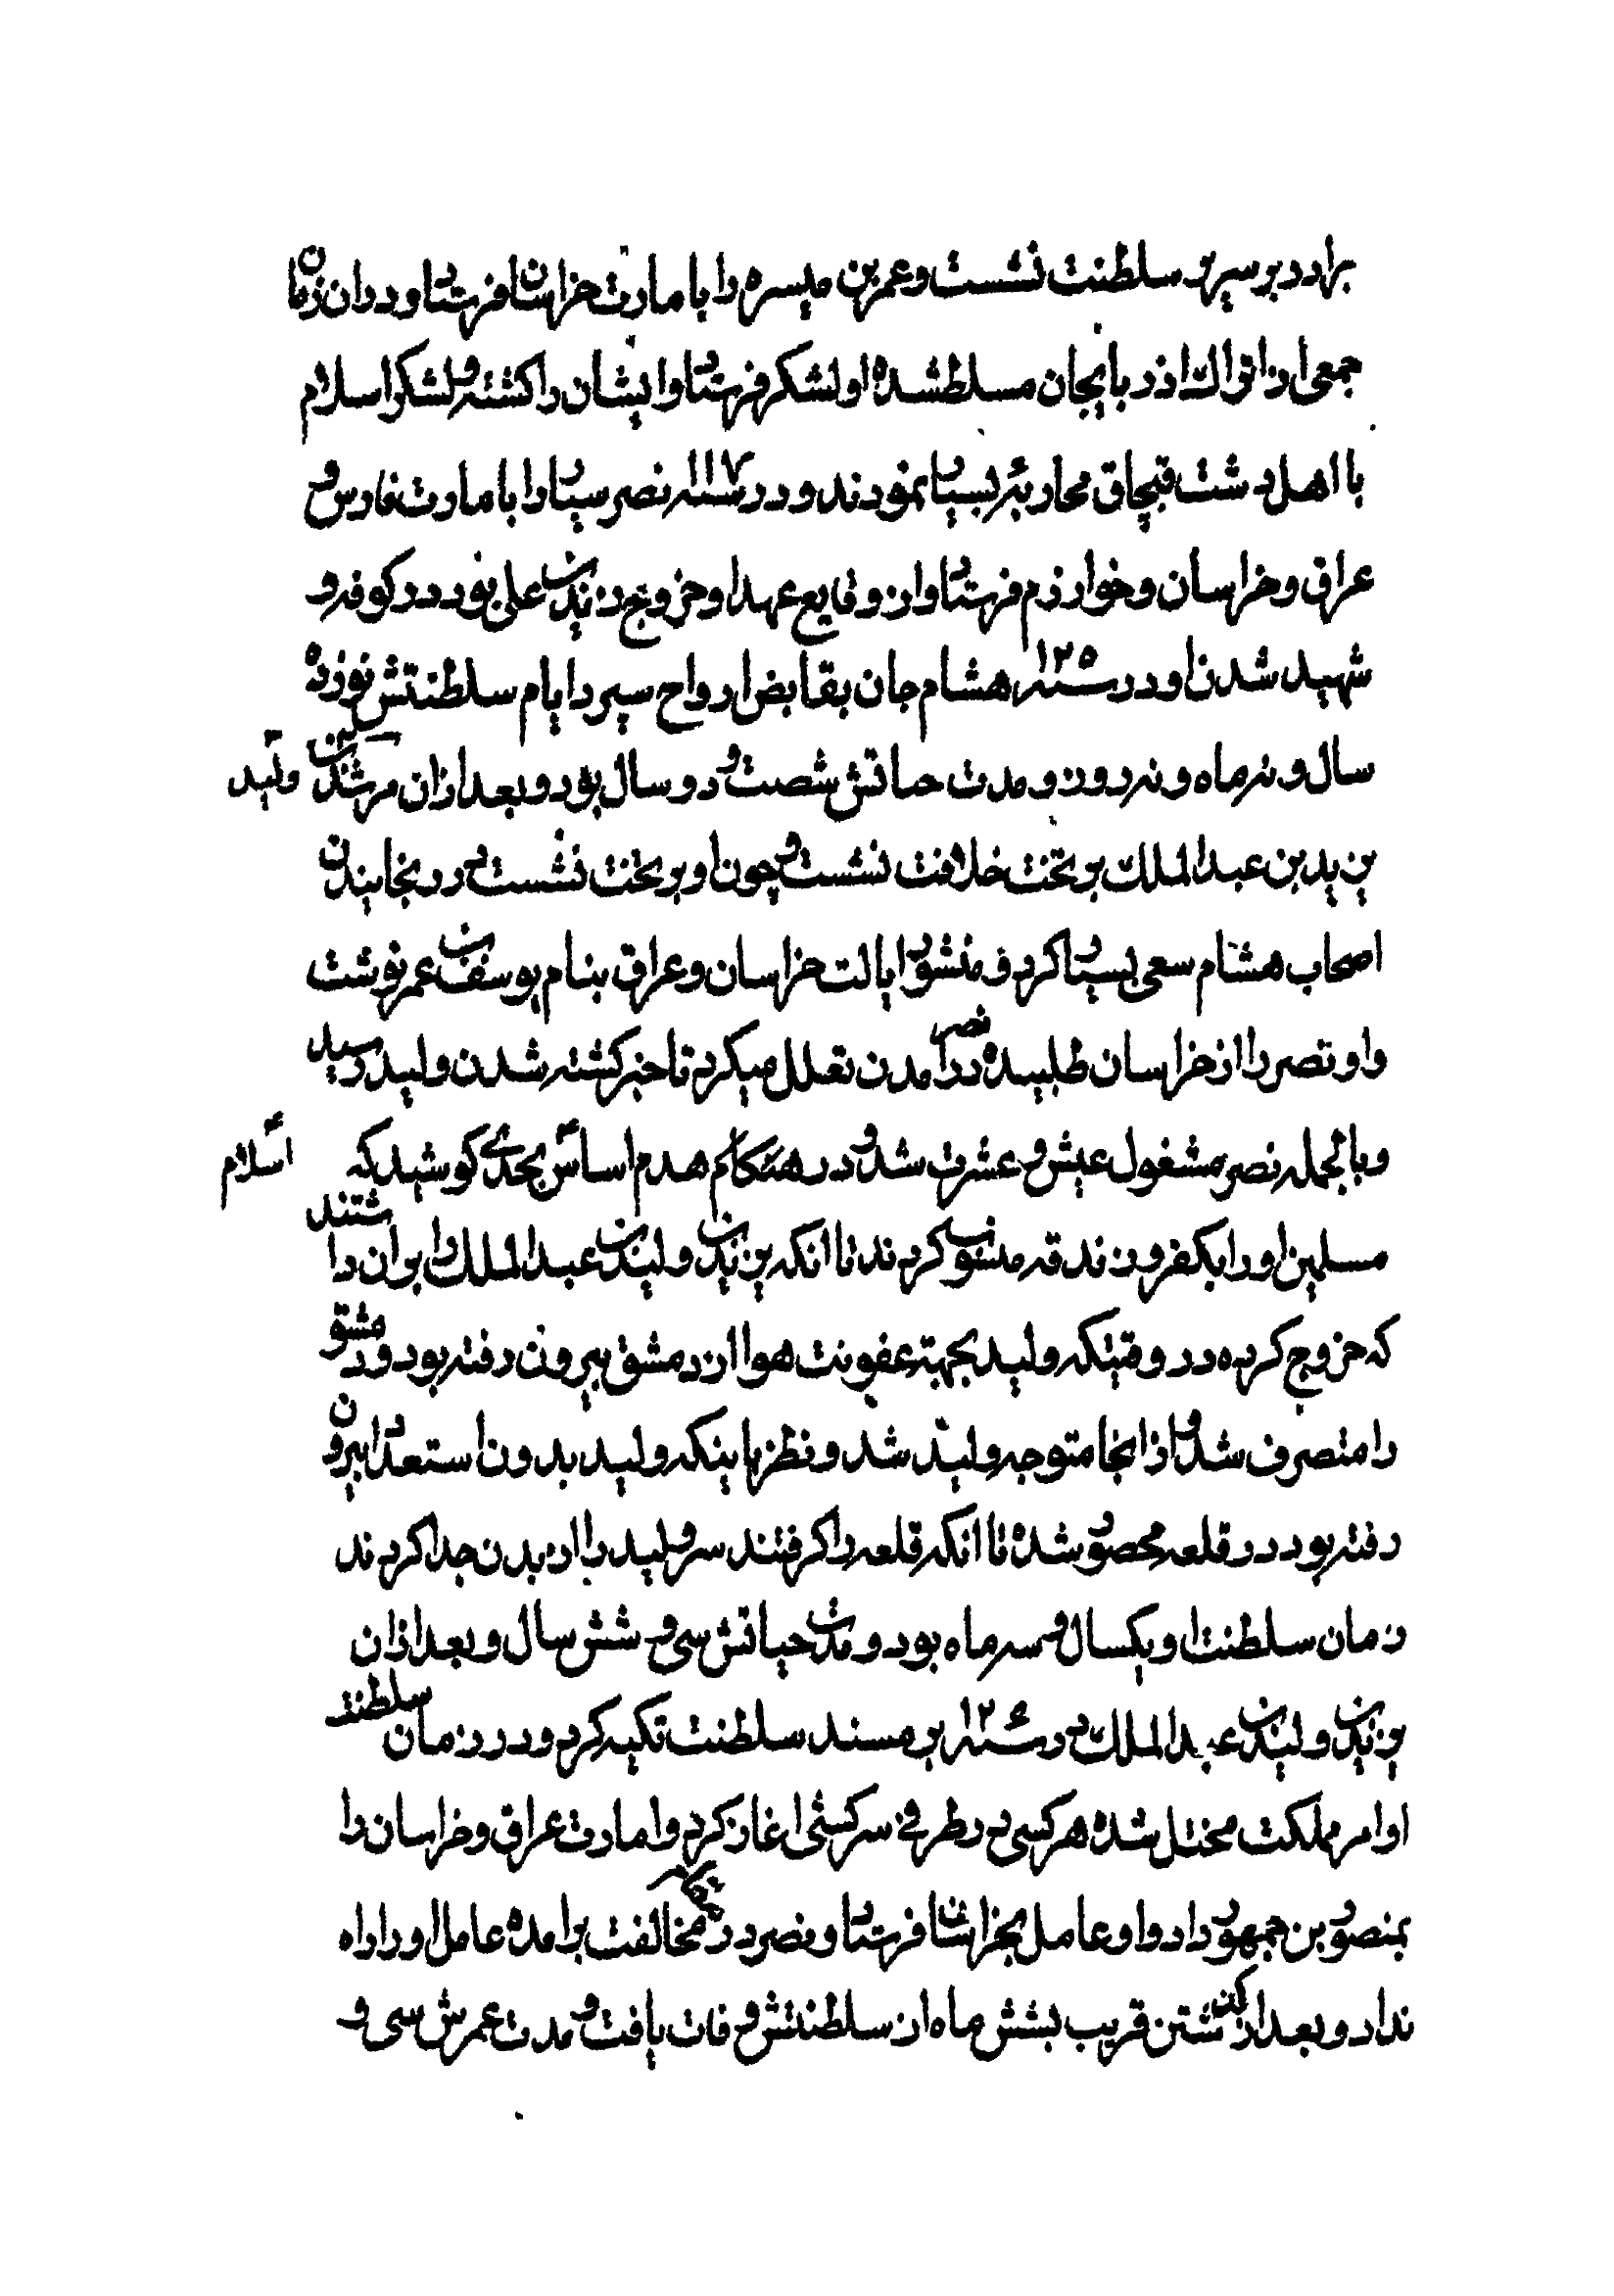 برادر بر سریر سلطنت نشست و عمر بن میسره را بامارت خراسان فرستاد و در ان زمان
جمعی از اتراك اذربایجان مسلط شده او لشکر فرستاد و ایشان را کشته و لشکر اسلام
با اهل دشت قبچاق محاربۀ بسیار نمودند و در سنه ۱۱۷ نصر سیار را بامارت فارس و
عراق و خراسان و خوارزم فرستاد و از وقایع عهد او خروج زید بن علی بود در کوفه و
شهید شدن او در سنه ۱۲۵ هشام جان بقابض ارواح سپرد ایام سلطنتش نوزده
سال و نه ماه و نه روز و مدت حیاتش شصت و دو سال بود و بعد از ان مرتد بن لعین ولید
یزید بن عبد الملك بر تخت خلافت نشست و چون او بر تخت نشست در رنجانیدن
اصحاب هشام سعی بسیار کرد و منشور ایالت خراسان و عراق بنام یوسف بن عمر نوشت
و او نصر را از خراسان طلبیده نصر در آمدن تعلل میکرد تا خبر کشته شدن ولید رسید
و بالجمله نصر مشغول عیش و عشرت شد و در هنگام هدم اساس بحدی کوشید که اسلام
مسلمین او را بکفر و زندقه منسوب کردند تا انکه یزید بن ولید بن عبد الملك را بر ان داشتند
که خروج کرده در وقتیکه ولید بجهة عفونت هوا از دمشق بیرون رفته بود و دمشق
را متصرف شد و از انجا متوجه ولید شد و نظر باینکه ولید بدون استعداد بیرون
رفته بود در قلعه محصور شده تا انکه قلعه را گرفتند سر ولید را از بدن جدا کردند
زمان سلطنت او یکسال و سه ماه بود و مدت حیاتش سی و شش سال و بعد از ان
یزید بن ولید بن عبد الملك در سنه ۱۲۶ بر مسند سلطنت تکیه کرد و در زمان سلطنت
او امر مملکت مختل شده هر کسی در طرفی سرکشی اغاز کرد و امارت عراق و خراسان را
بمنصور بن جمهور داد و او عامل بخراسان فرستاد و نصر در مخالفت برامده عامل او را راه
نداد و بعد از گذشتن قریب بشش ماه از سلطنتش وفات یافت و مدت عمرش سی و